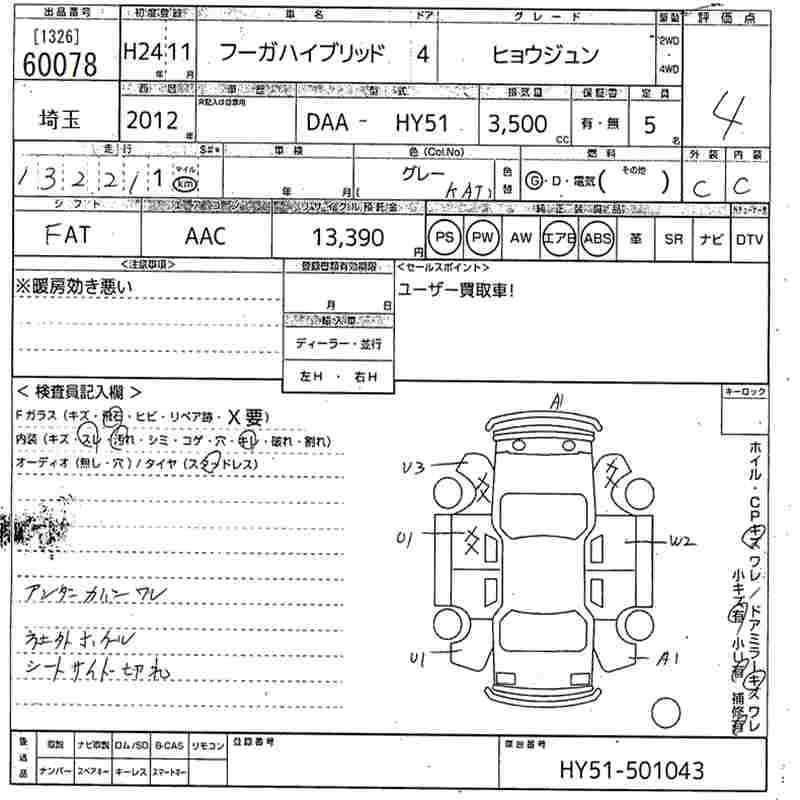 出品番号 初度登録 車名 ドア グレード 駆動 評価点
[1326]
60078 H24 11 フーガハイブリッド 4 ヒョウジュン 2WD ・ 4WD 4
年 月
西暦 車歴 型式 排気量 保証書 定員
未記入は自家用
埼玉 2012 年 DAA - HY51 3,500 CC 有・無 5 名
走行 S#* 車検 色(Col.No) 燃料 外装 内装
132211 マイル km 年 月 グレー ( KAD ) 色替 G・D・電気( その他 ) C C
シフト エアコン リサイクル預託金 純正装備品
FAT AAC 13,390 円 PS PW AW エアB ABS 革 SR ナビ DTV
<注意事項> 登録書類有効期限 <セールスポイント>
※暖房効き悪い 月 日 ユーザー買取車!
輸入車
ディーラー・並行
左H ・ 右H
< 検査員記入欄 > キーロック
Fガラス (キズ・飛石・ヒビ・リペア跡・X要)
内装 (キズ・スレ・汚れ・シミ・コゲ・穴・キレ・破れ・割れ)
オーディオ (無し・穴) / タイヤ (スタッドレス)
A1
U3
U1 W2
U1 A1
アンダーカバーワレ
社外ホイール
シートサイド切れ
ホイル・CPキズ ワレ / ドアミラーキズ ワレ
小キズ有 / 小U有 補修有
後送品 取説 ナビ取説 ロム/SD B-CAS リモコン 登録番号 車台番号
ナンバー スペアキー キーレス スマートキー HY51-501043